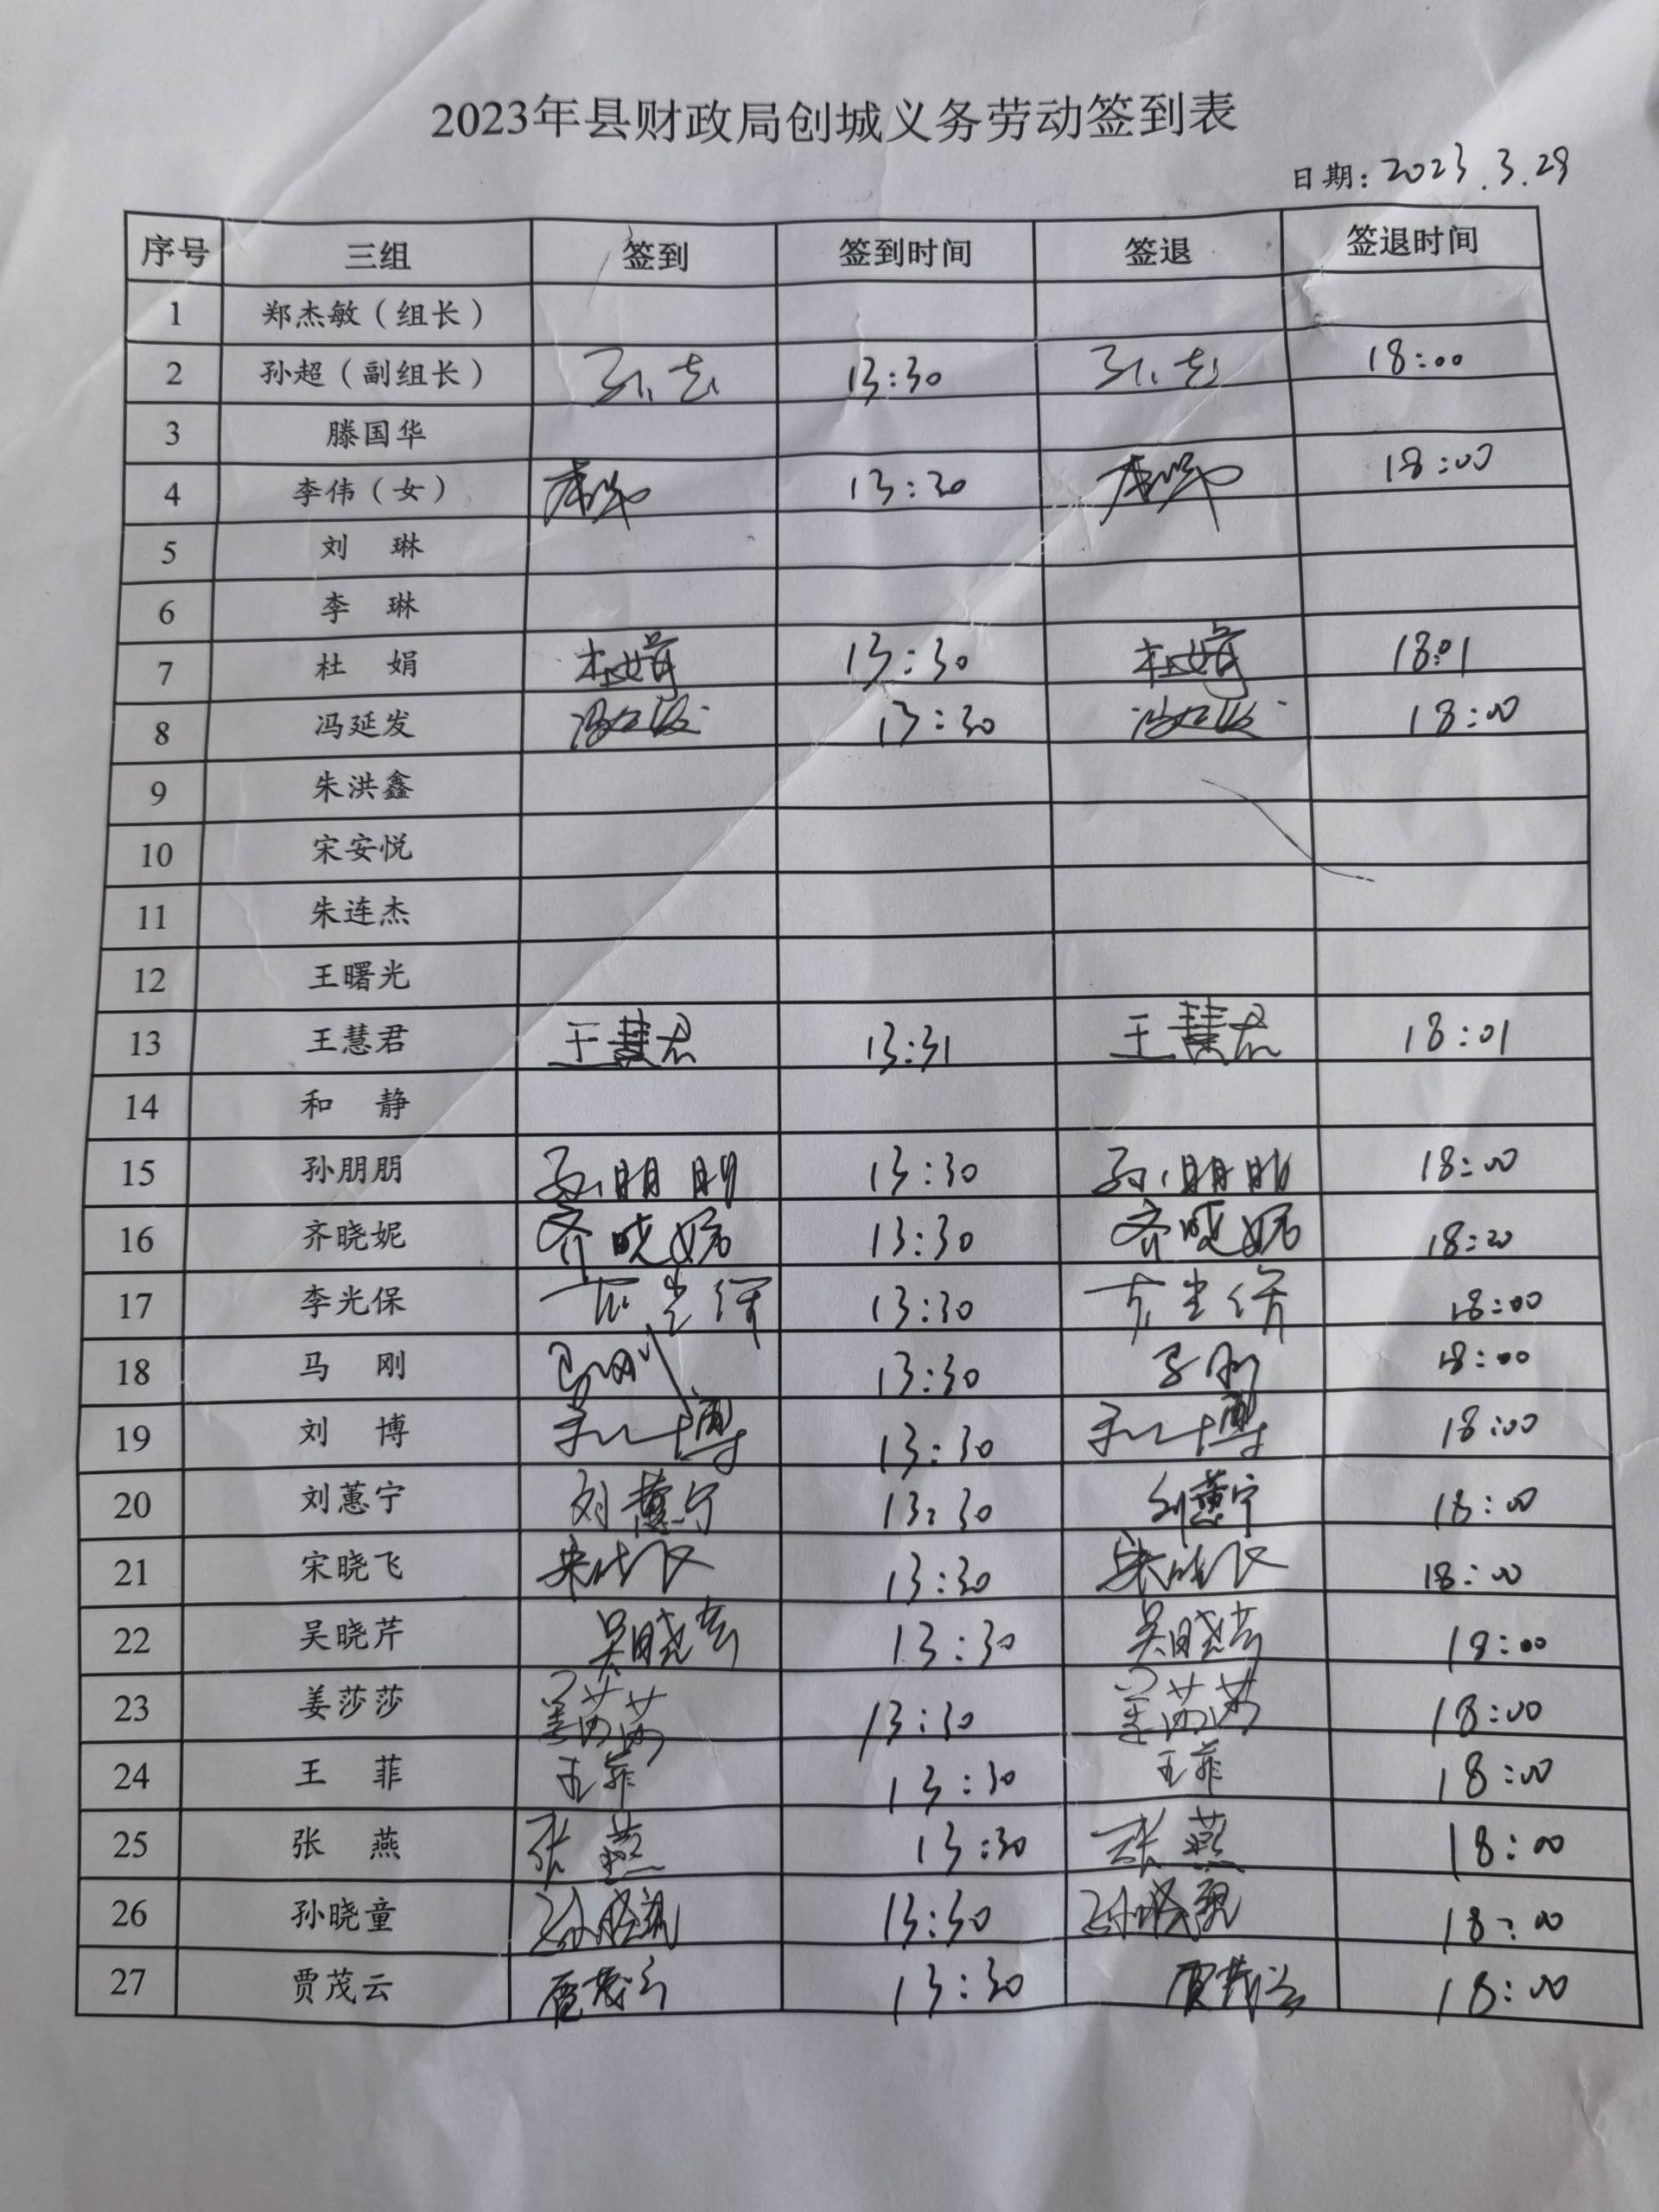 2023年县财政局创城义务劳动签到表
日期：2023.3.29
序号 三组 签到 签到时间 签退 签退时间
1 郑杰敏（组长）
2 孙超（副组长） 孙超 13:30 孙超 18:00
3 滕国华
4 李伟（女） 李伟 13:30 李伟 18:00
5 刘 琳
6 李 琳
7 杜 娟 杜娟 13:30 杜娟 18:01
8 冯延发 冯延发 13:30 冯延发 18:00
9 朱洪鑫
10 宋安悦
11 朱连杰
12 王曙光
13 王慧君 王慧君 13:31 王慧君 18:01
14 和 静
15 孙朋朋 孙朋朋 13:30 孙朋朋 18:00
16 齐晓妮 齐晓妮 13:30 齐晓妮 18:20
17 李光保 李光保 13:30 李光保 18:00
18 马 刚 马刚 13:30 马刚 18:00
19 刘 博 刘博 13:30 刘博 18:00
20 刘蕙宁 刘蕙宁 13:30 刘蕙宁 18:00
21 宋晓飞 宋晓飞 13:30 宋晓飞 18:00
22 吴晓芹 吴晓芹 13:30 吴晓芹 18:00
23 姜莎莎 姜莎莎 13:30 姜莎莎 18:00
24 王 菲 王菲 13:30 王菲 18:00
25 张 燕 张燕 13:30 张燕 18:00
26 孙晓童 孙晓童 13:30 孙晓童 18:00
27 贾茂云 贾茂云 13:30 贾茂云 18:00